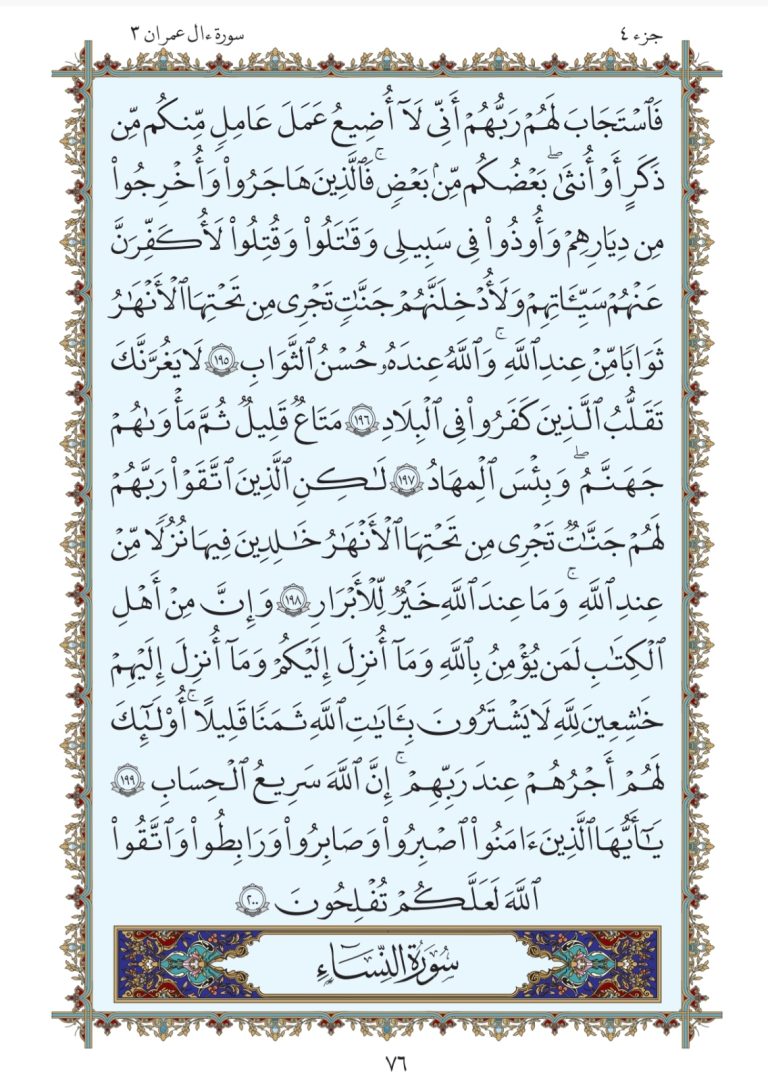 جزء ٤
سورة ءال عمران ٣
فَٱسْتَجَابَ لَهُمْ رَبُّهُمْ أَنِّى لَآ أُضِيعُ عَمَلَ عَامِلٍ مِّنكُم مِّن
ذَكَرٍ أَوْ أُنثَىٰ ۖ بَعْضُكُم مِّنۢ بَعْضٍ ۚ فَٱلَّذِينَ هَاجَرُوا۟ وَأُخْرِجُوا۟
مِن دِيَارِهِمْ وَأُوذُوا۟ فِى سَبِيلِى وَقَـٰتَلُوا۟ وَقُتِلُوا۟ لَأُكَفِّرَنَّ
عَنْهُمْ سَيِّـَٔاتِهِمْ وَلَأُدْخِلَنَّهُمْ جَنَّـٰتٍ تَجْرِى مِن تَحْتِهَا ٱلْأَنْهَـٰرُ
ثَوَابًا مِّنْ عِندِ ٱللَّهِ ۚ وَٱللَّهُ عِندَهُۥ حُسْنُ ٱلثَّوَابِ ١٩٥ لَا يَغُرَّنَّكَ
تَقَلُّبُ ٱلَّذِينَ كَفَرُوا۟ فِى ٱلْبِلَـٰدِ ١٩٦ مَتَـٰعٌ قَلِيلٌ ثُمَّ مَأْوَىٰهُمْ
جَهَنَّمُ ۖ وَبِئْسَ ٱلْمِهَادُ ١٩٧ لَـٰكِنِ ٱلَّذِينَ ٱتَّقَوْا۟ رَبَّهُمْ
لَهُمْ جَنَّـٰتٌ تَجْرِى مِن تَحْتِهَا ٱلْأَنْهَـٰرُ خَـٰلِدِينَ فِيهَا نُزُلًا مِّنْ
عِندِ ٱللَّهِ ۗ وَمَا عِندَ ٱللَّهِ خَيْرٌ لِّلْأَبْرَارِ ١٩٨ وَإِنَّ مِنْ أَهْلِ
ٱلْكِتَـٰبِ لَمَن يُؤْمِنُ بِٱللَّهِ وَمَآ أُنزِلَ إِلَيْكُمْ وَمَآ أُنزِلَ إِلَيْهِمْ
خَـٰشِعِينَ لِلَّهِ لَا يَشْتَرُونَ بِـَٔايَـٰتِ ٱللَّهِ ثَمَنًا قَلِيلًا ۗ أُو۟لَـٰٓئِكَ
لَهُمْ أَجْرُهُمْ عِندَ رَبِّهِمْ ۗ إِنَّ ٱللَّهَ سَرِيعُ ٱلْحِسَابِ ١٩٩
يَـٰٓأَيُّهَا ٱلَّذِينَ ءَامَنُوا۟ ٱصْبِرُوا۟ وَصَابِرُوا۟ وَرَابِطُوا۟ وَٱتَّقُوا۟
ٱللَّهَ لَعَلَّكُمْ تُفْلِحُونَ ٢٠٠
سُورَةُ النِّسَاءِ
٧٦